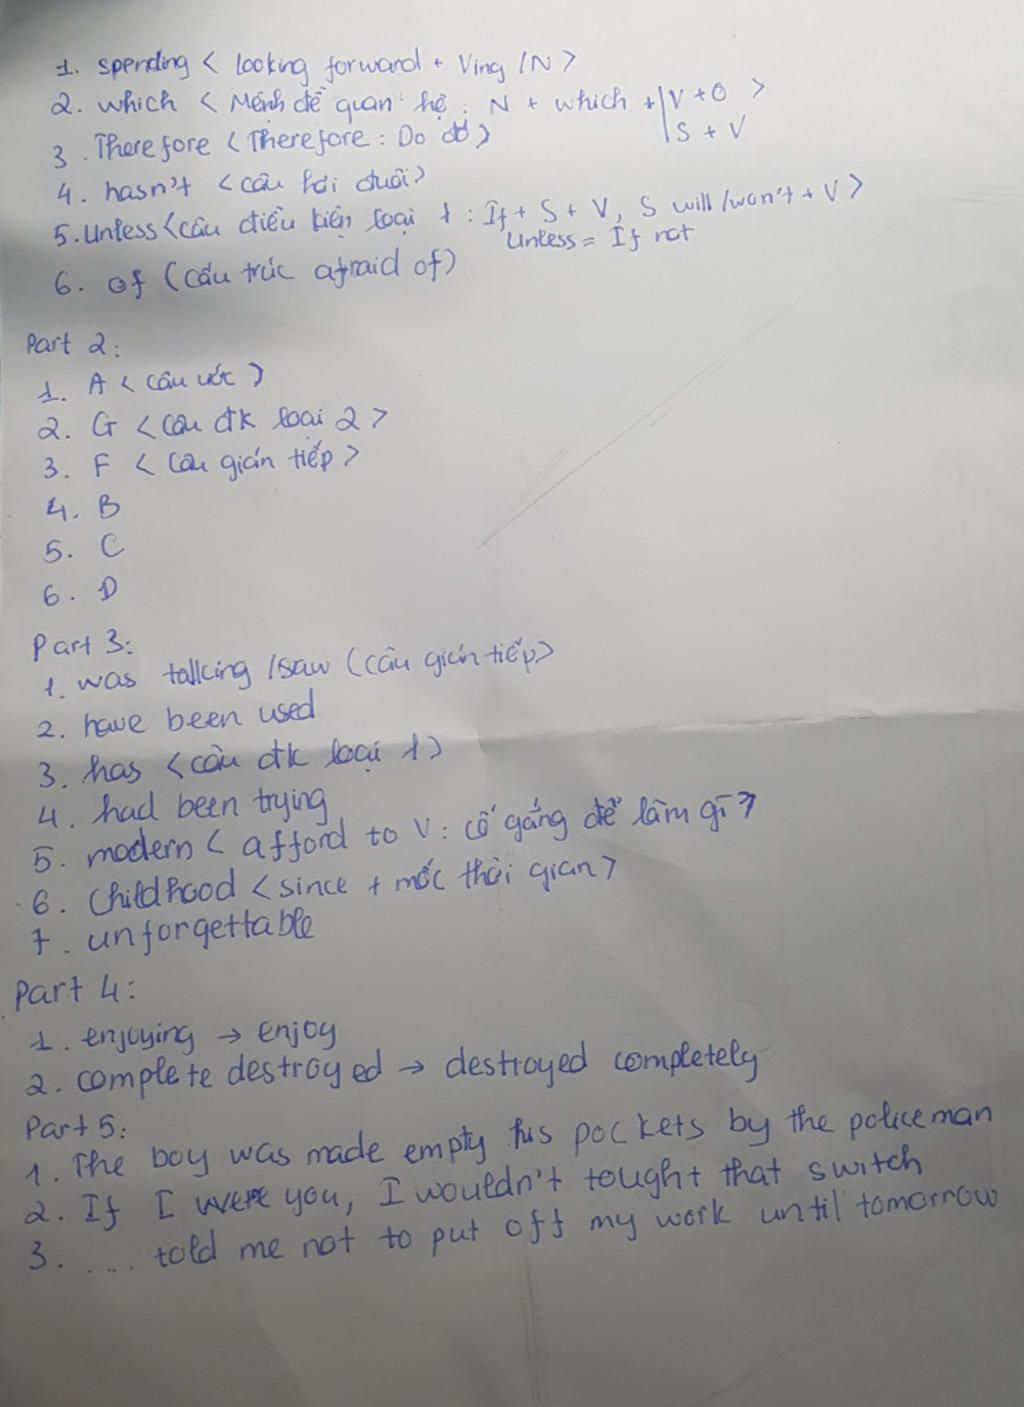 1. spending < looking forward + Ving /N >
2. which < Mệnh đề quan hệ : N + which + | V + O >
| S + V
3. Therefore < Therefore : Do đó >
4. hasn't < câu hỏi đuôi >
5. Unless < câu điều kiện loại 1 : If + S + V, S will /won't + V >
Unless = If not
6. of (cấu trúc afraid of)
Part 2:
1. A < câu ước >
2. G < câu đk loại 2 >
3. F < câu gián tiếp >
4. B
5. C
6. D
Part 3:
1. was talking /saw (câu gián tiếp>
2. have been used
3. has < câu đk loại 1 >
4. had been trying
5. modern < afford to V : cố gắng để làm gì >
6. Childhood < since + mốc thời gian >
7. unforgettable
Part 4:
1. enjoying → enjoy
2. complete destroyed → destroyed completely
Part 5:
1. The boy was made empty his pockets by the policeman
2. If I were you, I wouldn't tought that switch
3. .... told me not to put off my work until tomorrow